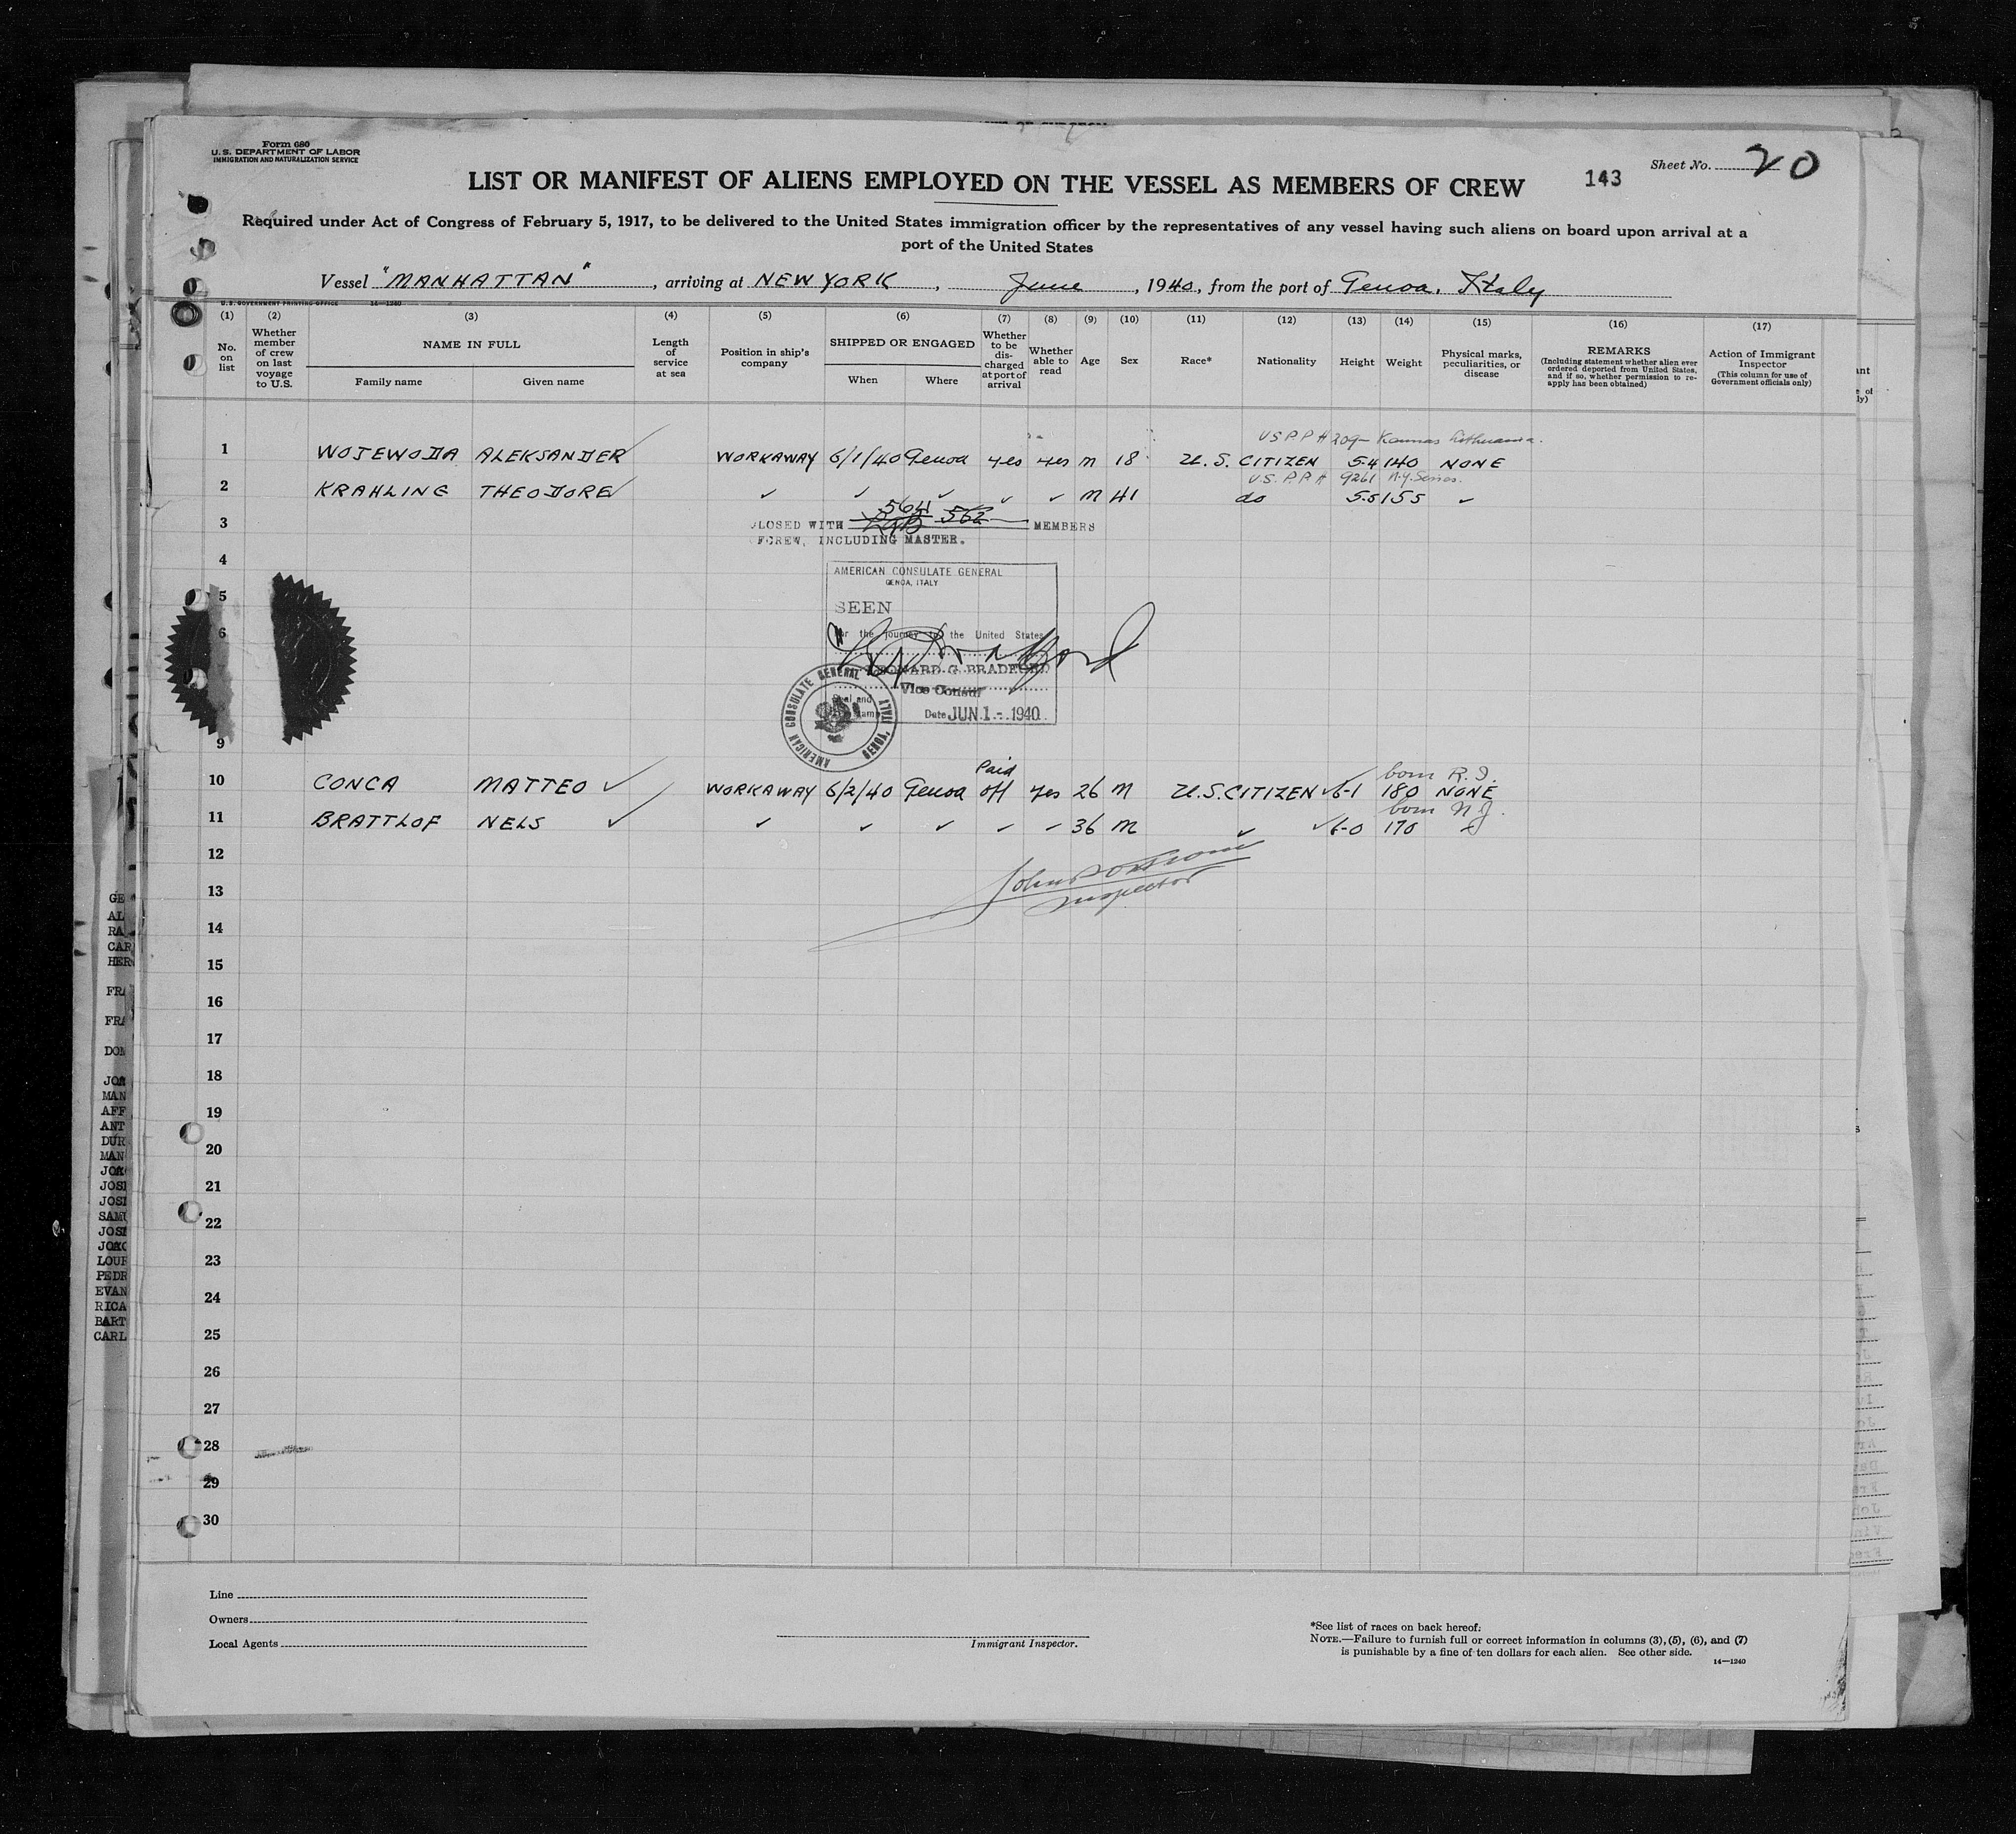 Form 680
U. S. DEPARTMENT OF LABOR
IMMIGRATION AND NATURALIZATION SERVICE
Sheet No. 20
143
LIST OR MANIFEST OF ALIENS EMPLOYED ON THE VESSEL AS MEMBERS OF CREW
Required under Act of Congress of February 5, 1917, to be delivered to the United States immigration officer by the representatives of any vessel having such aliens on board upon arrival at a
port of the United States
Vessel "MANHATTAN", arriving at NEW YORK, June, 1940, from the port of Genoa, Italy
U. S. GOVERNMENT PRINTING OFFICE 14—1240
(1) (2) (3) (4) (5) (6) (7) (8) (9) (10) (11) (12) (13) (14) (15) (16) (17)
No. on list
Whether member of crew on last voyage to U.S.
NAME IN FULL
Family name Given name
Length of service at sea
Position in ship's company
SHIPPED OR ENGAGED
When Where
Whether to be discharged at port of arrival
Whether able to read
Age
Sex
Race*
Nationality
Height
Weight
Physical marks, peculiarities, or disease
REMARKS
(Including statement whether alien ever ordered deported from United States, and if so, whether permission to re-apply has been obtained)
Action of Immigrant Inspector
(This column for use of Government officials only)
USPP# 209— Kaunas Lithuania.
1 WOJEWODA ALEKSANDER WORKAWAY 6/1/40 Genoa yes yes m 18 U.S. CITIZEN 5.4 140 NONE
U.S. P.P.# 9261 N.Y. Series.
2 KRAHLING THEODORE ✓ ✓ ✓ ✓ ✓ M 41 do 5.5 155 ✓
564
3 LOSED WITH 562 MEMBERS
CREW, INCLUDING MASTER.
4
AMERICAN CONSULATE GENERAL
GENOA, ITALY
5
SEEN
6 For the journey to the United States
LEONARD G. BRADFORD
Vice Consul
Seal and
Date JUN 1 - 1940
AMERICAN CONSULATE GENERAL GENOA, ITALY
9
Paid born R.I.
10 CONCA MATTEO ✓ WORKAWAY 6/2/40 Genoa off yes 26 M U.S. CITIZEN ✓ 6-1 180 NONE
born N.J.
11 BRATTLOF NELS ✓ ✓ ✓ ✓ ✓ ✓ 36 M ✓ ✓ 6-0 170 ✓
12
13 Inspector
14
15
16
17
18
19
20
21
22
23
24
25
26
27
28
29
30
Line
Owners
Local Agents
Immigrant Inspector.
*See list of races on back hereof.
NOTE.—Failure to furnish full or correct information in columns (3), (5), (6), and (7)
is punishable by a fine of ten dollars for each alien. See other side.
14—1240
GE
AL
RA
CAR
HER
FRA
FRA
DOM
JOA
MAN
AFF
ANT
DUR
MAN
JOA
JOSE
JOSE
SAMU
JOSE
JOAO
LOUR
PEDR
EVAN
RICA
BART
CARL